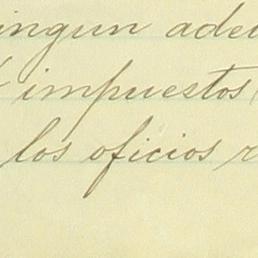 ingun ade
impuestos
los oficios r